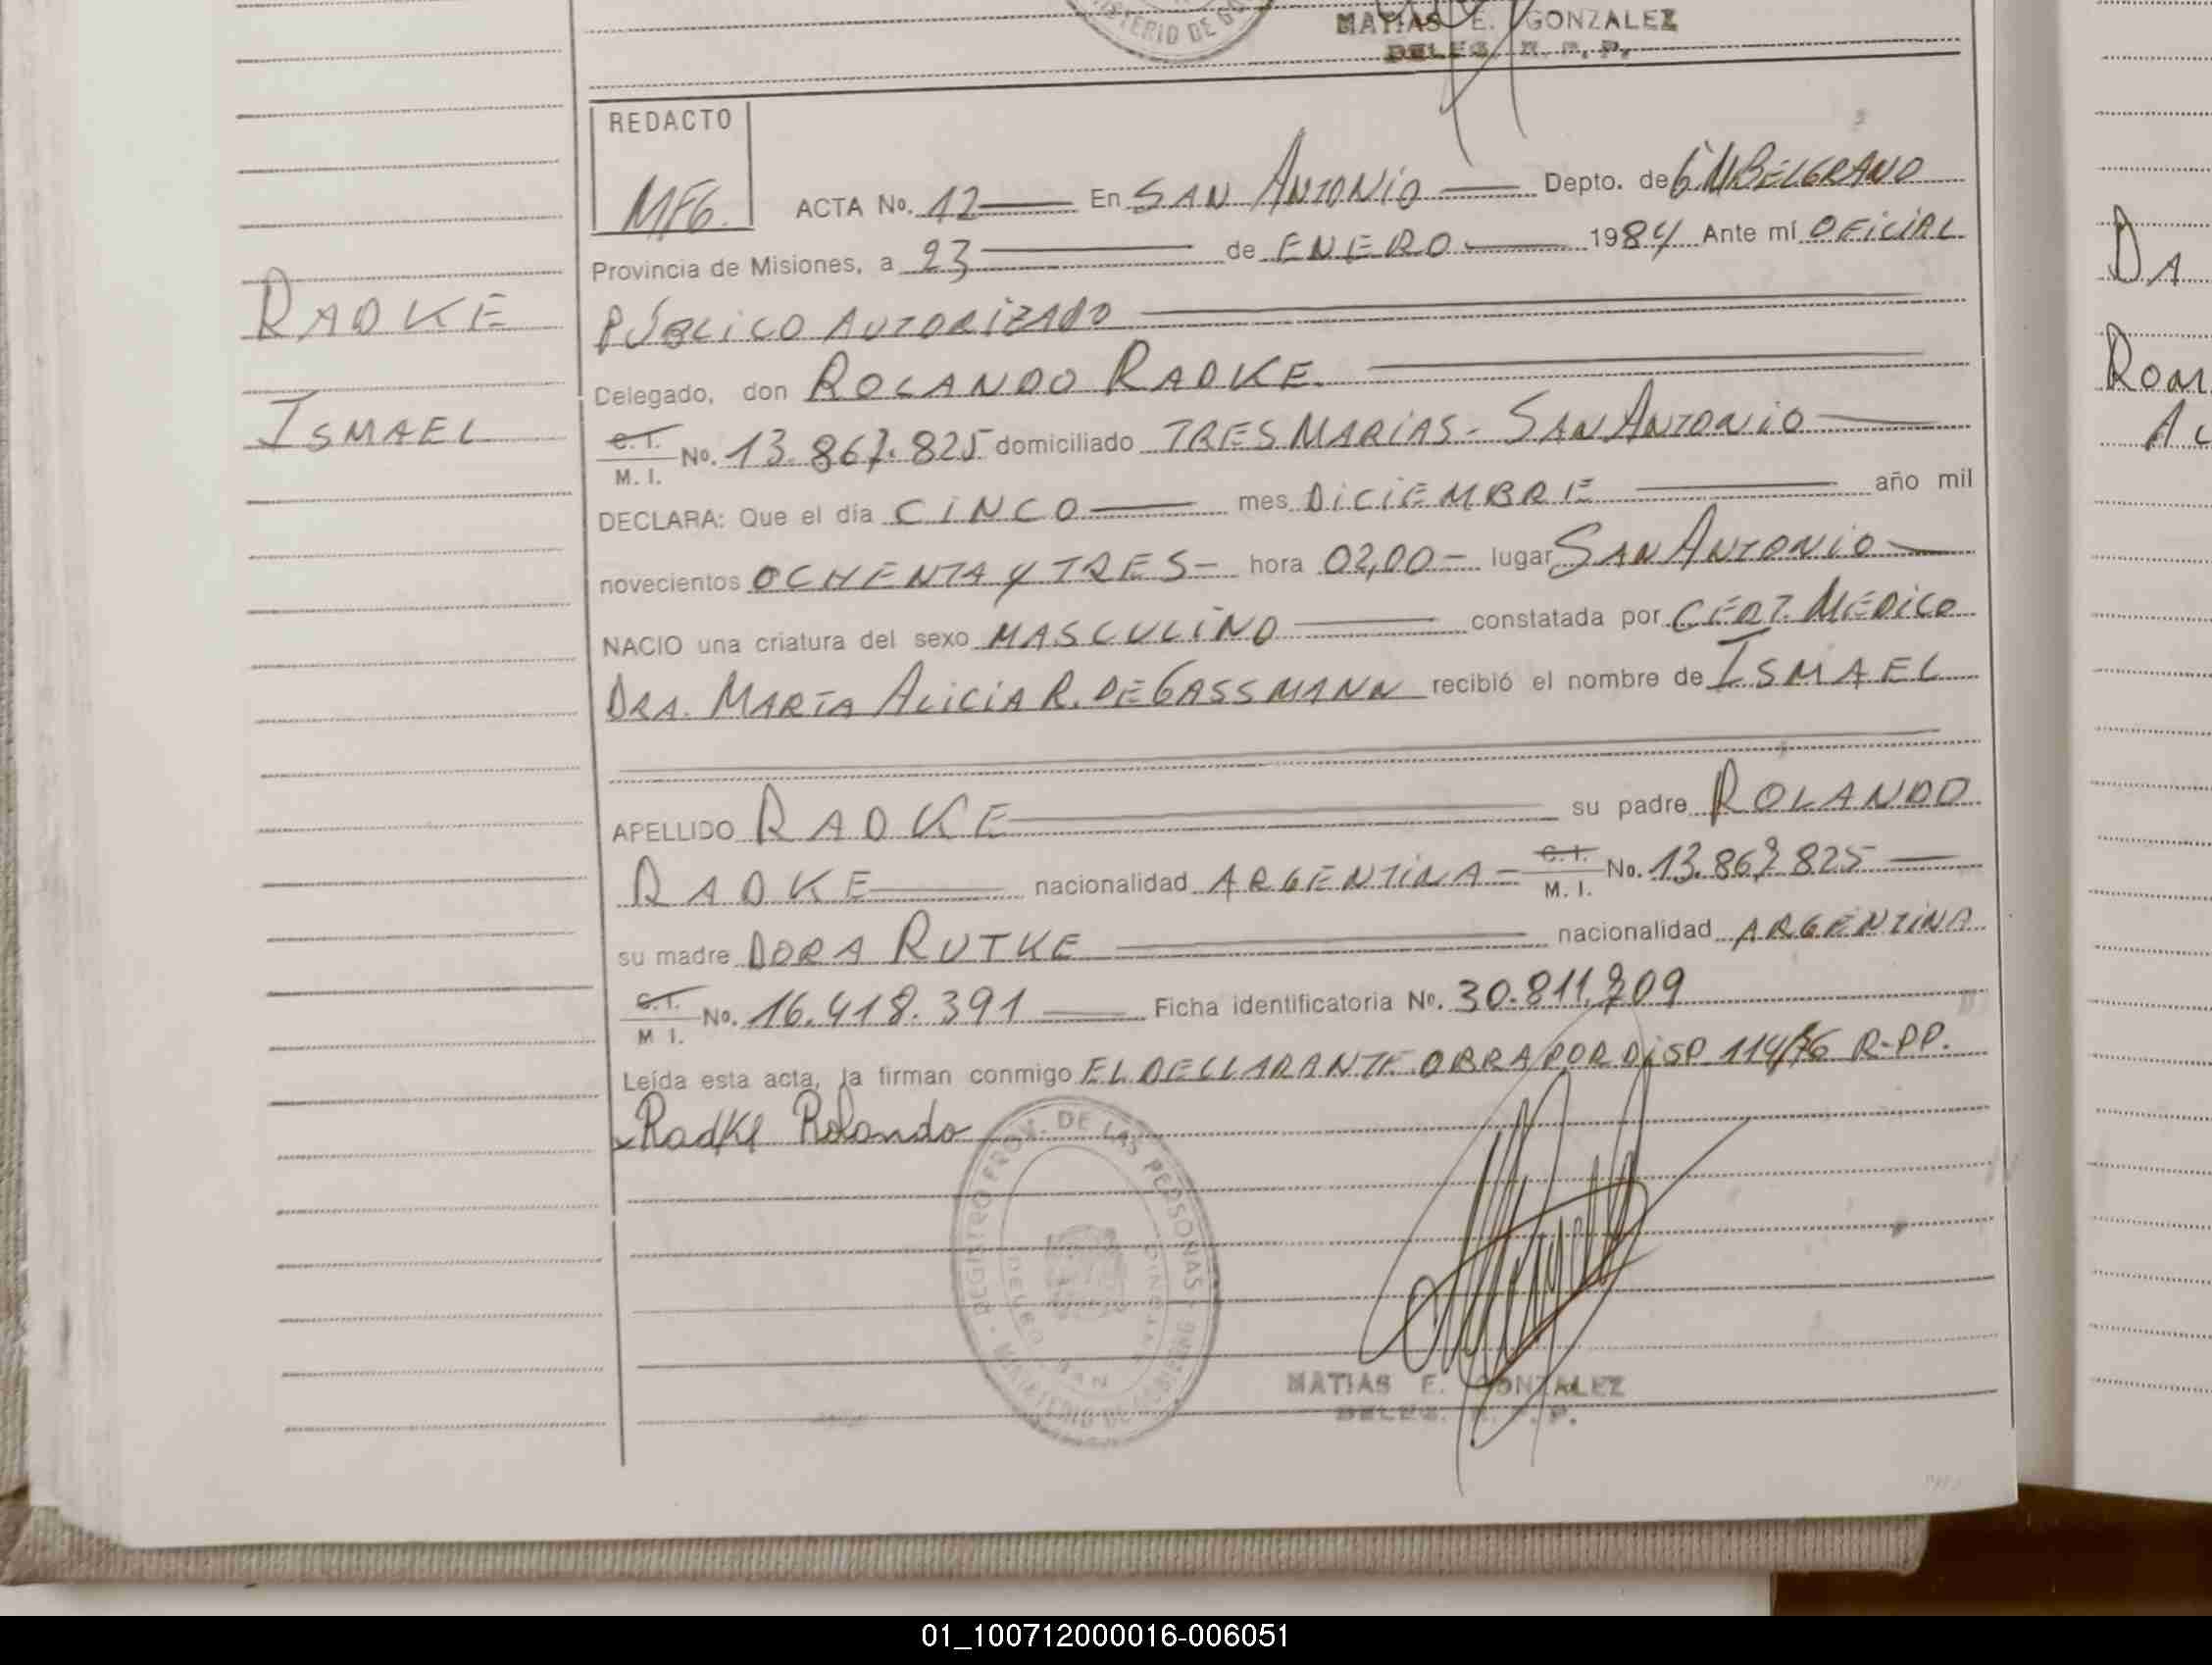 MATIAS E. GONZALEZ
DELEG. R. P. P.
REDACTO
MFG.
ACTA No. 12 En SAN ANTONIO Depto. de G M BELGRANO
Provincia de Misiones, a 23 de ENERO 1984 Ante mí OFICIAL
PÚBLICO AUTORIZADO
Delegado, don ROLANDO RADKE
C. I.
M. I. No. 13.867.825 domiciliado TRES MARIAS - SAN ANTONIO
DECLARA: Que el día CINCO mes DICIEMBRE año mil
novecientos OCHENTA Y TRES - hora 02,00 - lugar SAN ANTONIO
NACIO una criatura del sexo MASCULINO constatada por CERT. MEDICO
DRA. MARIA ALICIA R. DE GASSMANN recibió el nombre de ISMAEL
APELLIDO RADKE su padre ROLANDO
RADKE nacionalidad ARGENTINA - C. I.
M. I. No. 13.867.825
su madre DORA RUTKE nacionalidad ARGENTINA
C. I.
M I. No. 16.418.391 Ficha identificatoria No. 30.811.709
Leída esta acta, la firman conmigo EL DECLARANTE. OBRA POR DISP. 114/76 R-PP.
Radke Rolando
REGISTRO PROV. DE LAS PERSONAS
MINISTERIO DE GOBIERNO
MATIAS E. GONZALEZ
DELEG. R. P. P.
RADKE
ISMAEL
DA
01_100712000016-006051